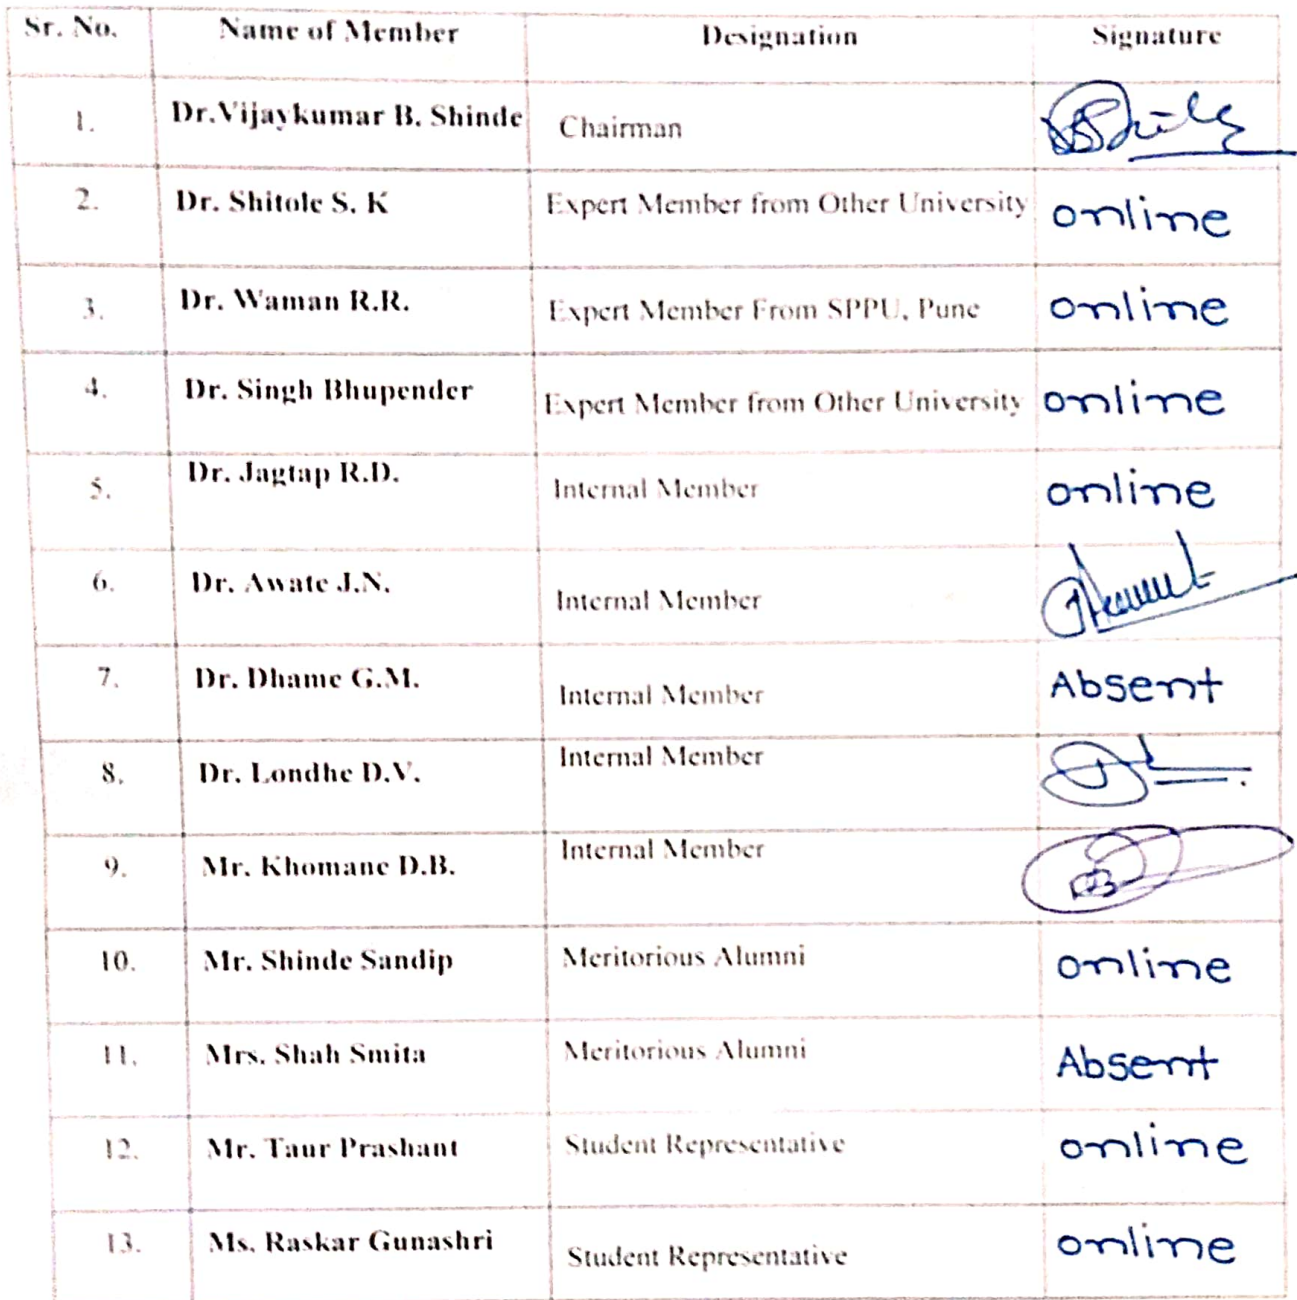 Sr. No. Name of Member Designation Signature
1. Dr.Vijaykumar B. Shinde Chairman
2. Dr. Shitole S. K Expert Member from Other University online
3. Dr. Waman R.R. Expert Member From SPPU, Pune online
4. Dr. Singh Bhupender Expert Member from Other University online
5. Dr. Jagtap R.D. Internal Member online
6. Dr. Awate J.N. Internal Member
7. Dr. Dhame G.M. Internal Member Absent
8. Dr. Londhe D.V. Internal Member
9. Mr. Khomane D.B. Internal Member
10. Mr. Shinde Sandip Meritorious Alumni online
11. Mrs. Shah Smita Meritorious Alumni Absent
12. Mr. Taur Prashant Student Representative online
13. Ms. Raskar Gunashri Student Representative online